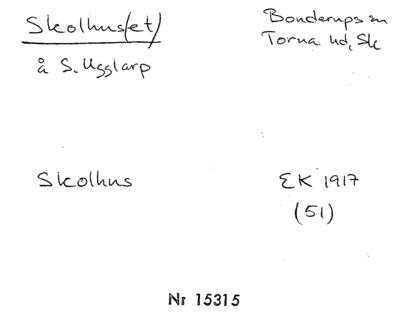 Skolhus(et)
å S. Ugglarp
Bonderups sn
Torna hd, Sk
Skolhus
EK 1917
(51)
Nr 15315